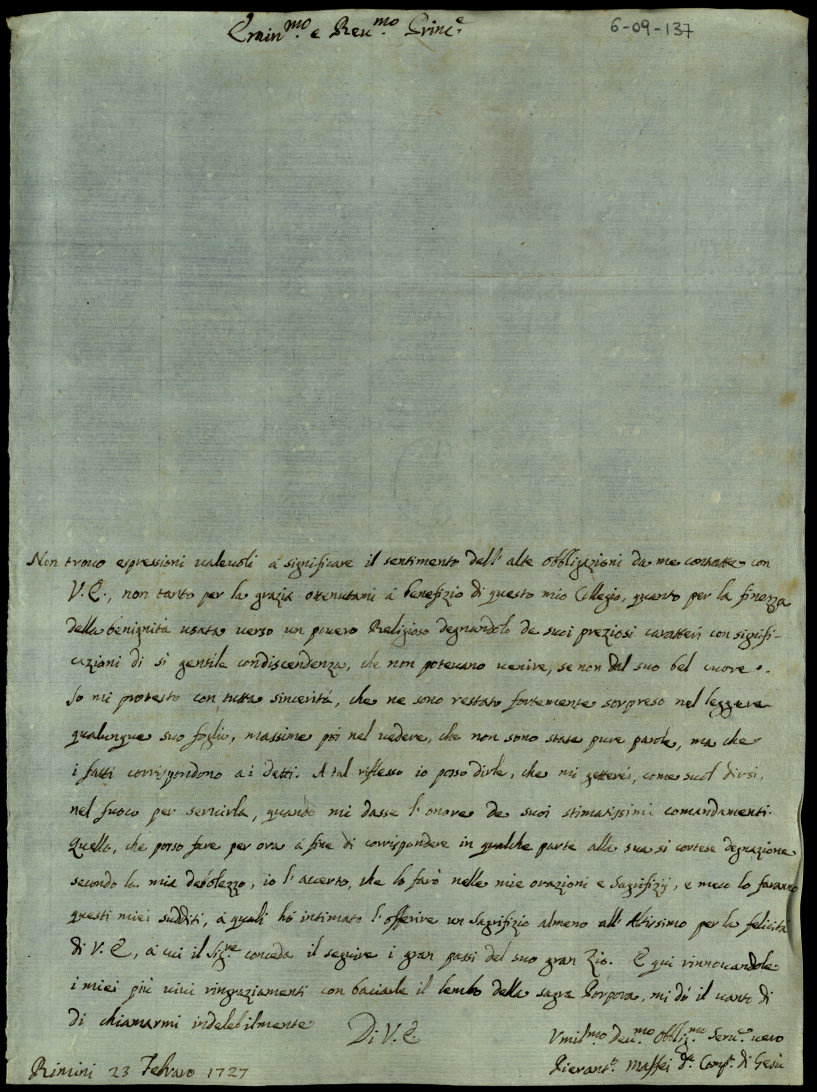 Emin.mo e Reu.mo Princ.e
6-09-137
Non trouo espressioni ualeuoli à significare il sentimento dell' alte obbligazioni da me contratte con
V. E., non tanto per la grazia ottenutami à benefizio di questo mio Collegio, quanto per la finezza
della benignità usata uerso un pouero Religioso degnandolo de suoi preziosi caratteri con signifi-
cazioni di si gentile condiscendenza, che non poteuano uenire, se non dal suo bel cuore.
Io mi protesto con tutta sincerità, che ne sono restato fortemente sorpreso nel leggere
qualunque suo foglio, massime poi nel uedere, che non sono state pure parole, ma che
i fatti corrispondono ai detti. A tal riflesso io posso dirle, che mi getterei, come suol dirsi,
nel fuoco per seruirla, quando mi dasse l' onore de suoi stimatissimi comandamenti.
Quello, che posso fare per ora à fine di corrispondere in qualche parte alla sua si cortese degnazione
secondo la mia debolezza, io l' accerto, che lo farò nelle mie orazioni e Sagrifizij, e meco lo faranno
questi miei sudditi, à quali hò intimato l' offerire un Sagrifizio almeno all' Altissimo per la felicità
di V. E., à cui il Sig.re conceda il seguire i gran passi del suo gran Zio. E qui rinnouandole
i miei più uiui ringraziamenti con baciarle il lembo della sagra Porpora, mi dò il uanto di
di chiamarmi indelebilmente
Di V. E.
Vmil.mo Deu.mo Obblig.mo Seru.e uero
Pierant.o Maffei d.a Comp.a di Gesù
Rimini 23 Febraro 1727